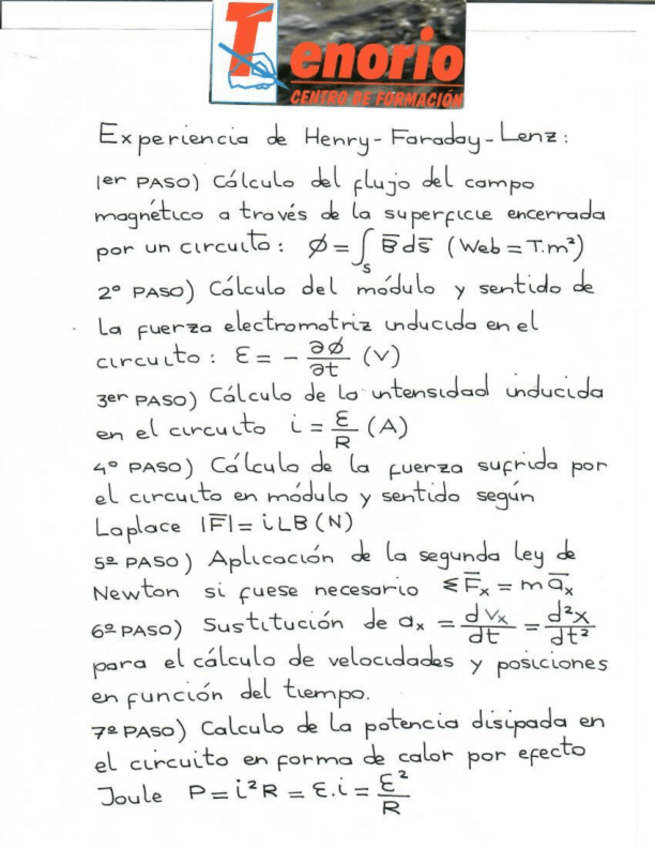 Tenorio
CENTRO DE FORMACIÓN
Experiencia de Henry-Faraday-Lenz:
1er PASO) Cálculo del flujo del campo
magnético a través de la superficie encerrada
por un circuito: ∅ = ∫_S B̄ ds̄ (Web = T.m²)
2º PASO) Cálculo del módulo y sentido de
la fuerza electromotriz inducida en el
circuito: Ɛ = - ∂∅/∂t (V)
3er PASO) Cálculo de la intensidad inducida
en el circuito i = Ɛ/R (A)
4º PASO) Cálculo de la fuerza sufrida por
el circuito en módulo y sentido según
Laplace |F̄| = iLB (N)
5º PASO) Aplicación de la segunda ley de
Newton si fuese necesario ΣF̄ₓ = m āₓ
6º PASO) Sustitución de aₓ = dVₓ/dt = d²x/dt²
para el cálculo de velocidades y posiciones
en función del tiempo.
7º PASO) Calculo de la potencia disipada en
el circuito en forma de calor por efecto
Joule P = i²R = Ɛ.i = Ɛ²/R